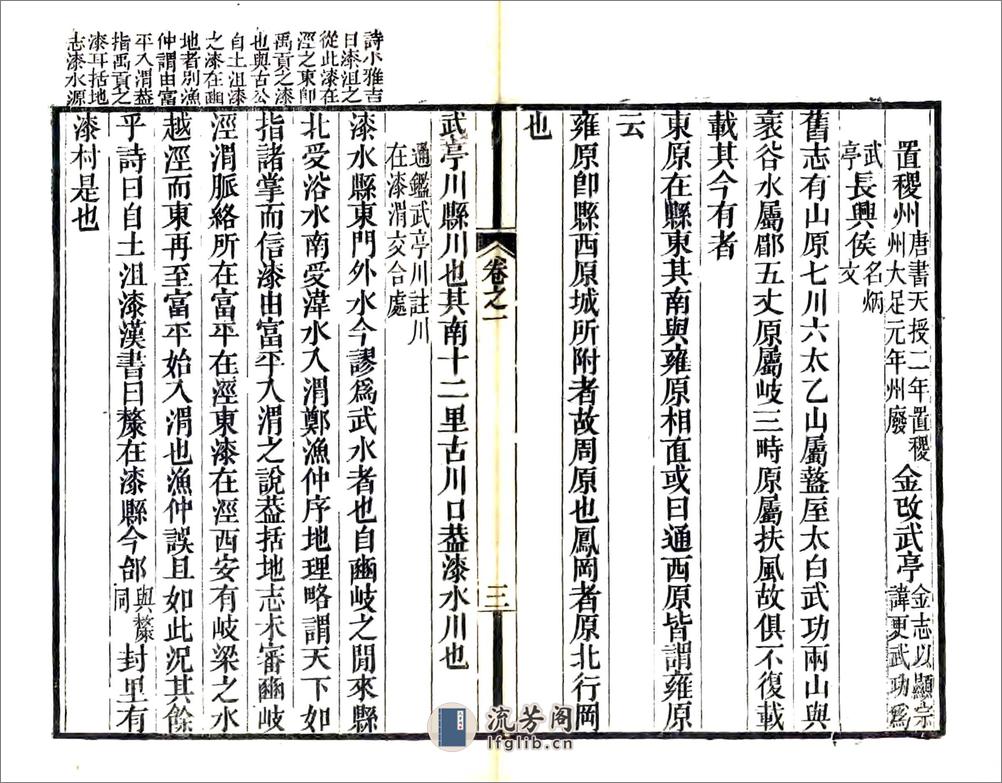 置稷州唐書天授二年置稷州大足元年州廢金改武亭金志以顯宗諱更武功爲
武亭長興侯名炳文
舊志有山原七川六太乙山屬盩厔太白武功兩山與
裒谷水屬郿五丈原屬岐三畤原屬扶風故俱不復載
載其今有者
東原在縣東其南與雍原相直或曰通西原皆謂雍原
云
雍原卽縣西原城所附者故周原也鳳岡者原北行岡
也
卷之一
三
武亭川縣川也其南十二里古川口葢漆水川也
通鑑武亭川註川在漆渭交合處
漆水縣東門外水今謬爲武水者也自豳岐之閒來縣
北受浴水南受湋水入渭鄭漁仲序地理略謂天下如
指諸掌而信漆由富平入渭之說葢括地志未審豳岐
涇渭脈絡所在富平在涇東漆在涇西安有岐梁之水
越涇而東再至富平始入渭也漁仲誤且如此況其餘
乎詩曰自土沮漆漢書曰斄在漆縣今邰與斄同封里有
漆村是也
詩小雅吉
日漆沮之
從此漆在
涇之東卽
禹貢之漆
也與古公
自土沮漆
之漆在豳
地者別漁
仲謂由富
平入渭葢
指禹貢之
漆耳括地
志漆水源
流芳阁
lfglib.cn